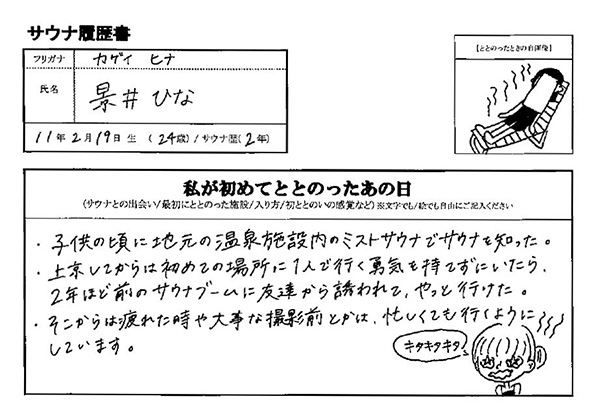 サウナ履歴書
フリガナ カゲイ ヒナ
氏名 景井ひな
11年2月19日生 (24歳)/サウナ歴(2年)
【ととのったときの自画像】
私が初めてととのったあの日
(サウナとの出会い/最初にととのった施設/入り方/初ととのいの感覚など)※文字でも/絵でも自由にご記入ください
・子供の頃に地元の温泉施設内のミストサウナでサウナを知った。
・上京してからは初めての場所に1人で行く勇気を持てずにいたら、
2年ほど前のサウナブームに友達から誘われて、やっと行けた。
・そこからは疲れた時や大事な撮影前とかは、忙しくても行くように
しています。
キタキタキタ